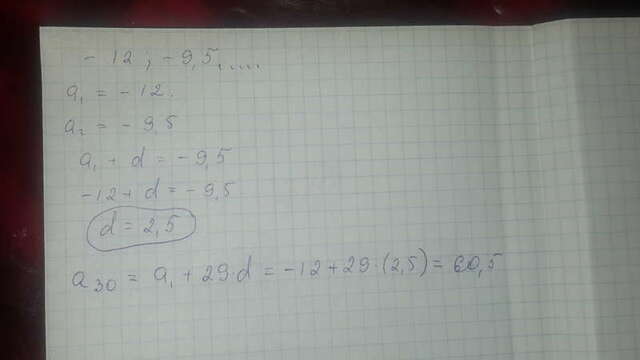 - 12 ; - 9,5, ....
a₁ = - 12.
a₂ = - 9,5
a₁ + d = - 9,5
-12 + d = - 9,5
d = 2,5
a₃₀ = a₁ + 29·d = -12 + 29·(2,5) = 60,5